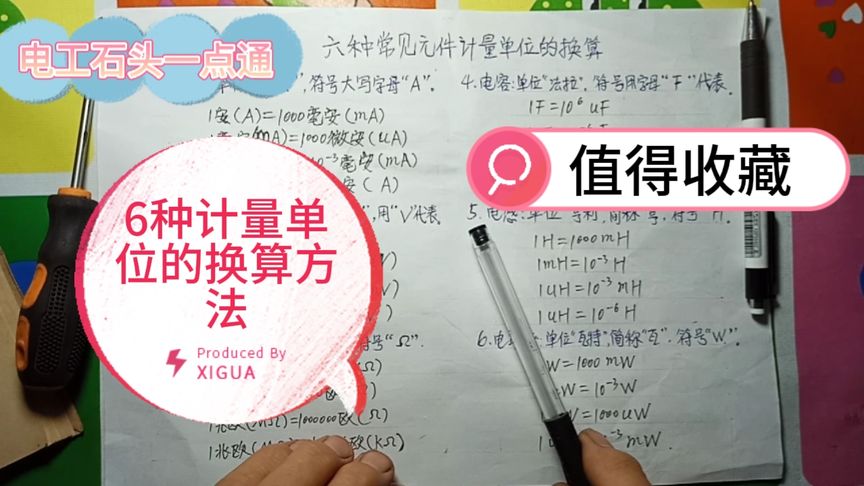 电工石头一点通
六种常见元件计量单位的换算
符号大写字母“A”。
1安(A)=1000毫安(mA)
mA)=1000微安(uA)
10⁻³毫安(mA)
安(A)
用“V”代表
符号“Ω”.
1兆欧(MΩ)=1000000欧(Ω)
1兆欧
欧(KΩ)
4.电容:单位“法拉”,符号用字母“F”代表.
1F=10⁶uF
值得收藏
5.电感:单位
符号
H
1H=1000mH
1mH=10⁻³H
1uH=10⁻³mH
1uH=10⁻⁶H
单位“瓦特”,简称“瓦”.符号“W”.
W=1000mW
W=10⁻³W
W=1000uW
⁻³mW.
6种计量单
位的换算方
法
Produced By
XIGUA